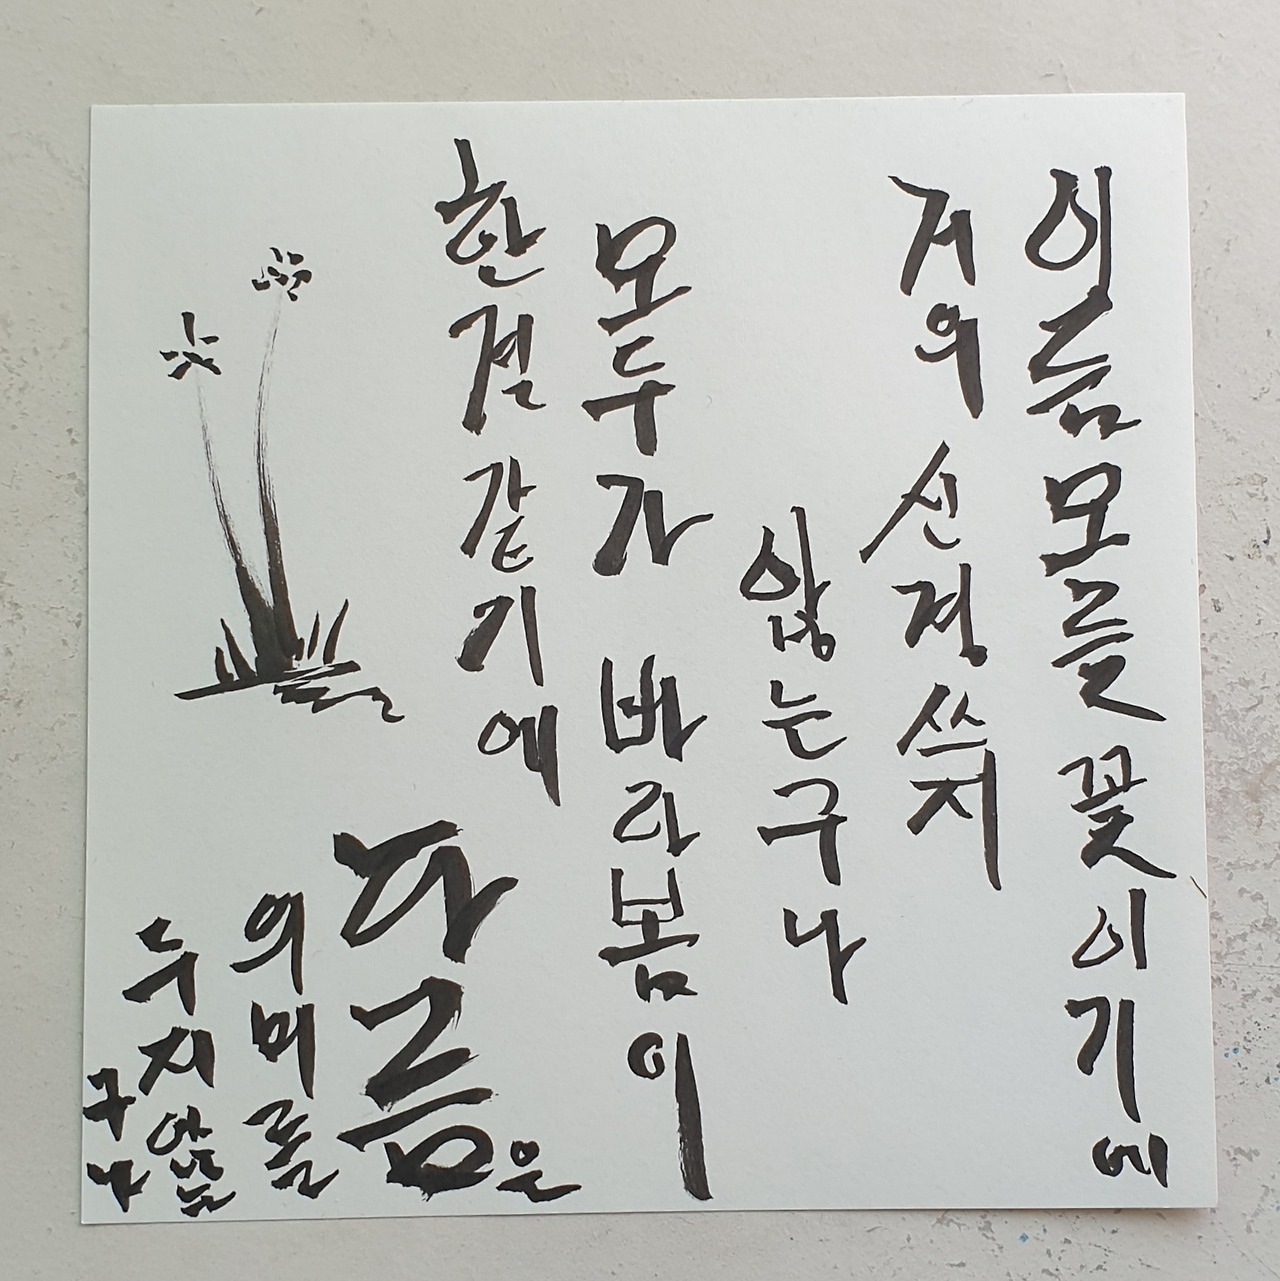 이름 모를 꽃이기에
거의 신경쓰지
않는구나
모두가 바라봄이
한결같기에
다름을
의미를
두지 않는
구나